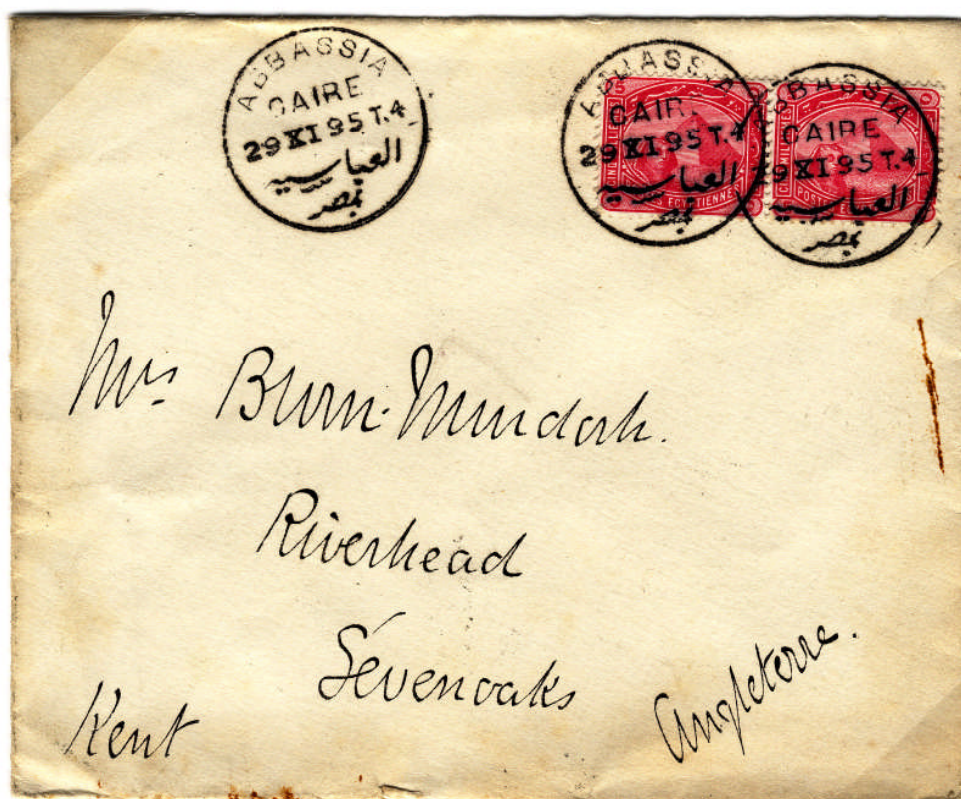 ABBASSIA
CAIRE
29 XI 95 T.4
العباسيه
بمصر
ABBASSIA
CAIR
29 XI 95 T.4
العباسيه
بمصر
ABBASSIA
CAIRE
9 XI 95 T.4
العباسيه
بمصر
5
POSTES EGYPTIENNES
CINQ MILLIEMES
Mrs Burn-Murdoch.
Riverhead
Sevenoaks
Kent
Angleterre.